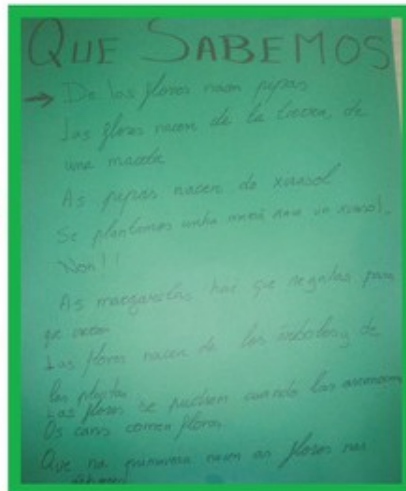 QUE SABEMOS
→ De las flores nacen pipas
Las flores nacen de la tierra, de
una maceta
As pipas nacen do xirasol
Se plantamos unha nace un xirasol.
Non!!
As margaritas hai que regalas para
que
Las flores nacen de los árboles y de
las plantas
Las flores se pudren cuando las arrancamos
Os cans comen flores
Que na primavera nacen as flores nas